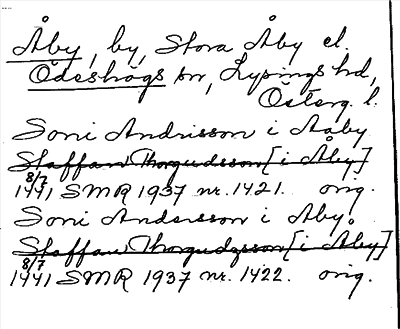 Åby, by, Stora Åby el.
Ödeshögs sn, Lysings hd,
Österg. l.
Soni Andrisson i Aaby
Staffan Thorgudsson [i Åby]
8/7
1441 SMR 1937 nr. 1421. orig.
Soni Andersson i Åby.
Staffan Thorgudzsson [i Åby]
8/7
1441 SMR 1937 nr. 1422. orig.